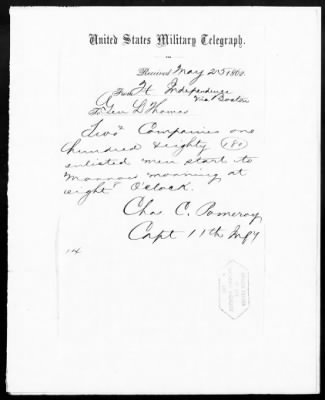 United States Military Telegraph.
Received May 25 186
From Ft Independence
Via Boston
To Gen L Thomas
Two Companies one
hundred & eighty (180)
enlisted men start to
Morrow morning at
eight O'Clock.
Chas C. Pomeroy
Capt 11th Infy
14